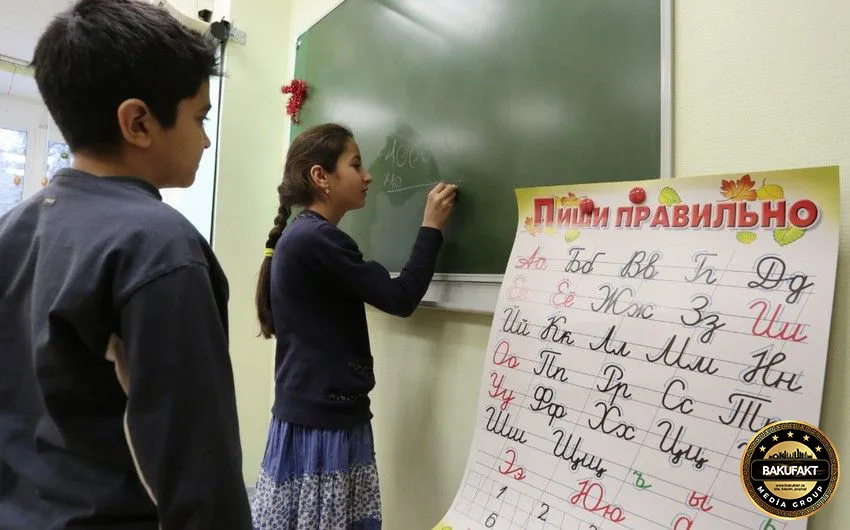 1000
Пиши правильно
Аа Бб Вв Гг Дд
Ее Ёё Жж Зз Ии
Йй Кк Лл Мм Нн
Оо Пп Рр Сс Тт
Уу Фф Хх Цц
Шш Щщ ъ ы
Ээ Юю Я
1 2
6
BAKUFAKT
www.bakufakt.az
MEDIA GROUP